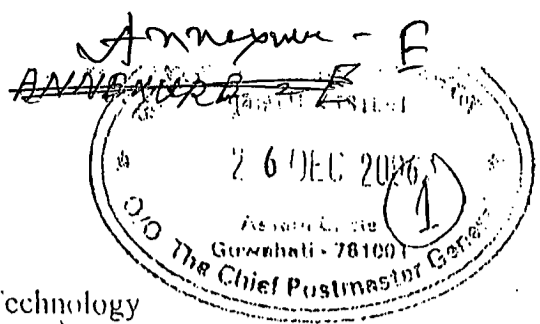 Annexure - E
ANNEXURE - E
26 DEC 2006
1
Guwahati - 781001
O/O The Chief Postmaster General
echnology